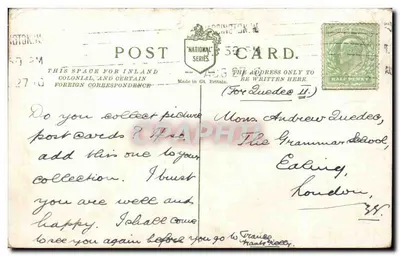 POST CARD.
"NATIONAL" SERIES
Made in Gt. Britain.
THIS SPACE FOR INLAND
COLONIAL, AND CERTAIN
FOREIGN CORRESPONDENCE
THE ADDRESS ONLY TO
BE WRITTEN HERE.
HALF PENNY
(For Quedec II.)
Do you collect picture
post cards? If so
add this one to your
collection. I trust
you are well and
happy. I shall come
to see you again before you go to France
Mons Andrew Quedec,
The Grammar School,
Ealing,
London,
W.